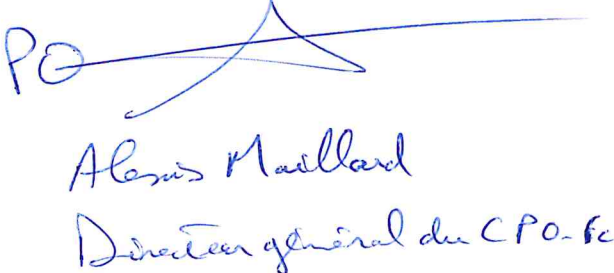 PO
Alexis Maillard
Directeur général du CPO-Fc